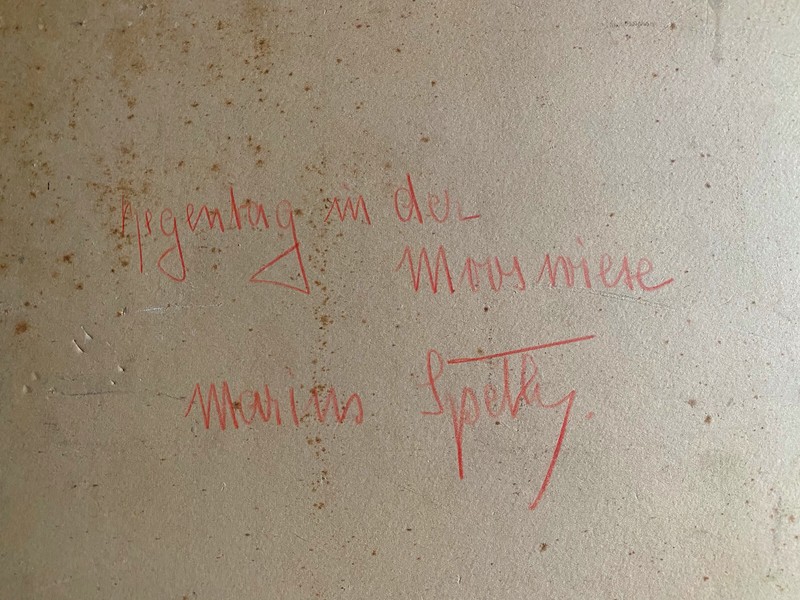 Regentag in der
Mooswiese
Marius Spethj.